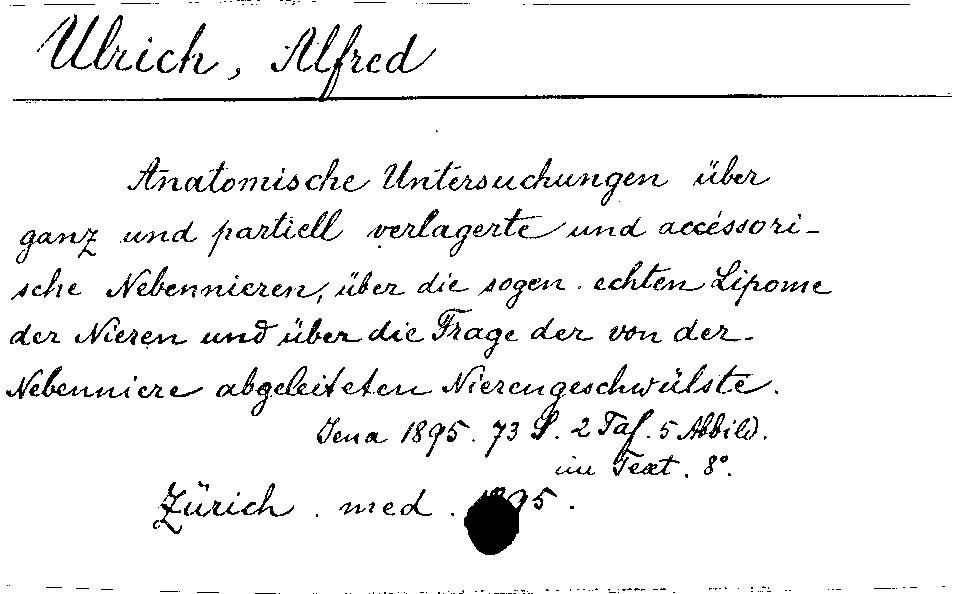 Ulrich, Alfred
Anatomische Untersuchungen über
ganz und partiell verlagerte und accéssori-
sche Nebennieren, über die sogen. echten Lipome
der Nieren und über die Frage der von der
Nebenniere abgeleiteten Nierengeschwülste.
Jena 1895. 73 S. 2 Taf. 5 Abbild.
im Text. 8°.
Zürich. med. 1895.